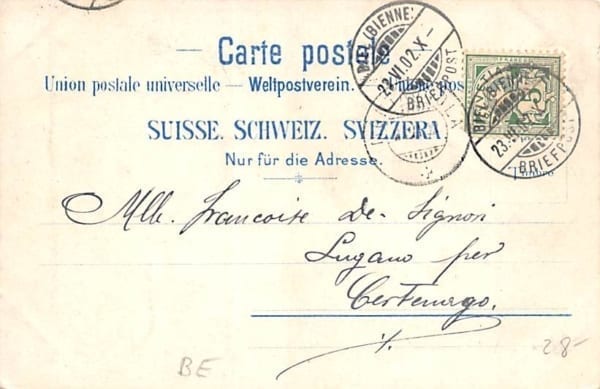 Carte postale
Union postale universelle — Weltpostverein. — Unione pos
SUISSE. SCHWEIZ. SVIZZERA
Nur für die Adresse.
BIEL (BIENNE)
23.VI.02.X-
BRIEFPOST
BIEL (BIENNE)
23.VI.02.X-
BRIEFPOST
5
Mlle. Francoise De-Signori
Lugano per
Certenago.
BE
28-